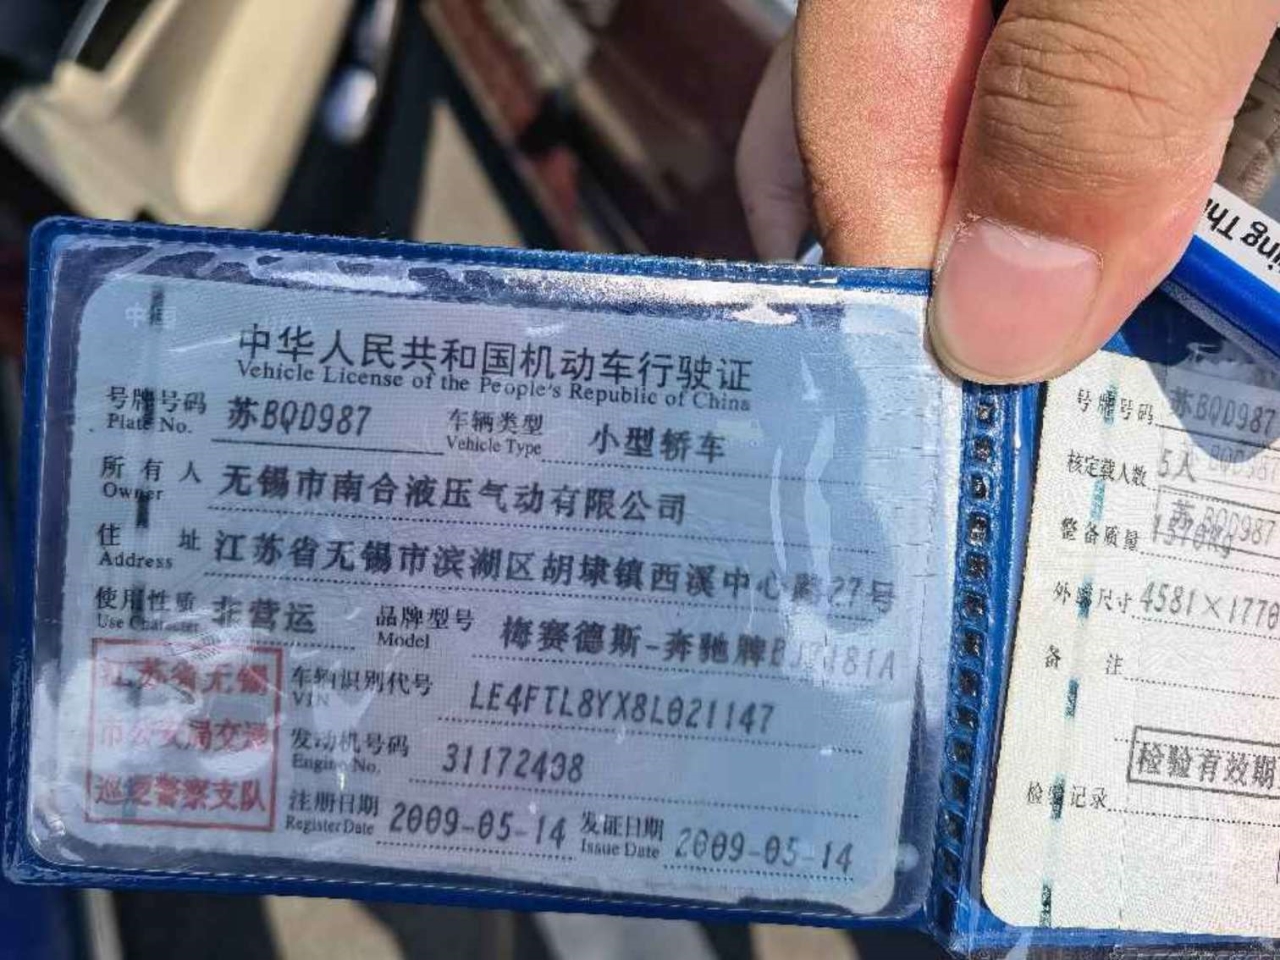 中华人民共和国机动车行驶证
Vehicle License of the People's Republic of China
号牌号码 苏BQD987 车辆类型 小型轿车
Plate No. Vehicle Type
所有人 无锡市南合液压气动有限公司
Owner
住址 江苏省无锡市滨湖区胡埭镇西溪中心路27号
Address
使用性质 非营运 品牌型号 梅赛德斯-奔驰牌
Use Character Model
江苏省无锡
市公安局交通
巡逻警察支队
车辆识别代号 LE4FTL8YX8L021147
VIN
发动机号码 31172498
Engine No.
注册日期 2009-05-14 发证日期 2009-05-14
Register Date Issue Date
号牌号码 苏BQD987
核定载人数 5人
苏BQD987
整备质量 1570kg
外廓尺寸 4581×1770
备注
检验有效期
检验记录